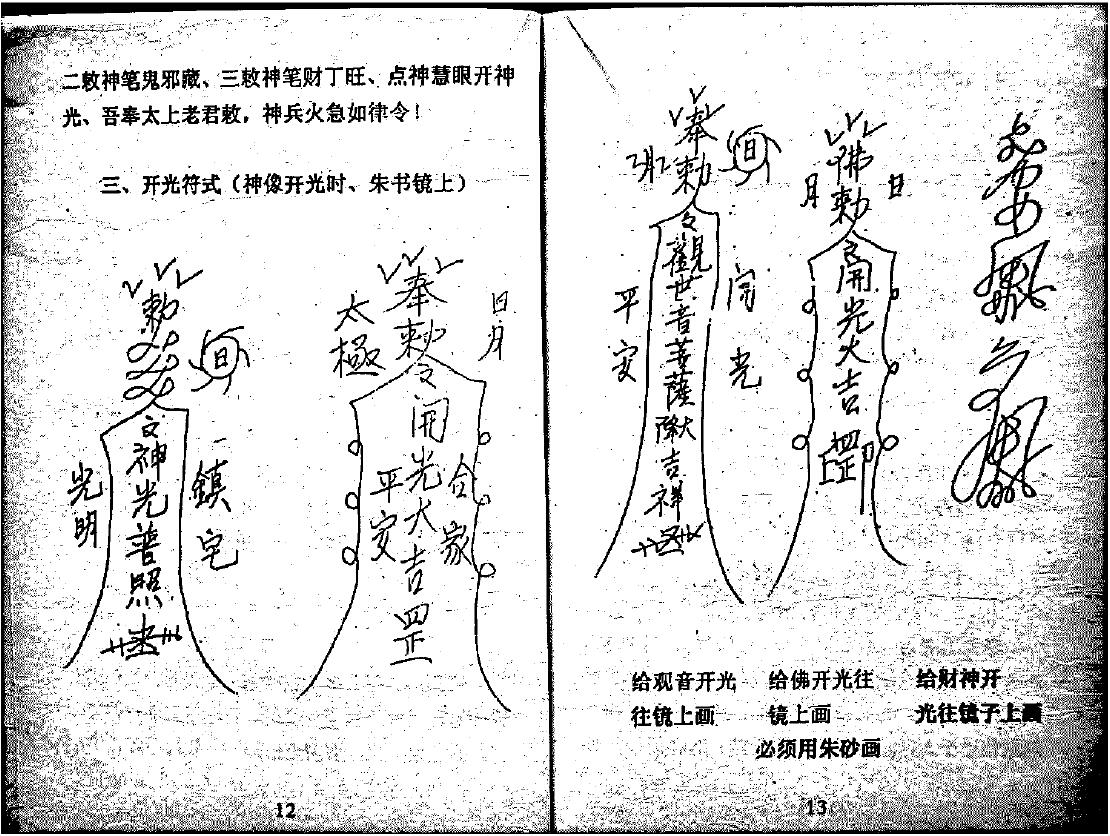 二敕神笔鬼邪藏、三敕神笔财丁旺、点神慧眼开神
光、吾奉太上老君敕，神兵火急如律令！
三、开光符式（神像开光时、朱书镜上）
勅
日
令神光普照
光明
鎮宅
奉勅令開光大吉罡
太極
日月
平安
合家
12
奉勅令觀世音菩薩降大吉祥
日
平安
開光
佛勅令開光大吉罡印
月
日
给观音开光
往镜上画
给佛开光往
镜上画
给财神开
光往镜子上画
必须用朱砂画
13